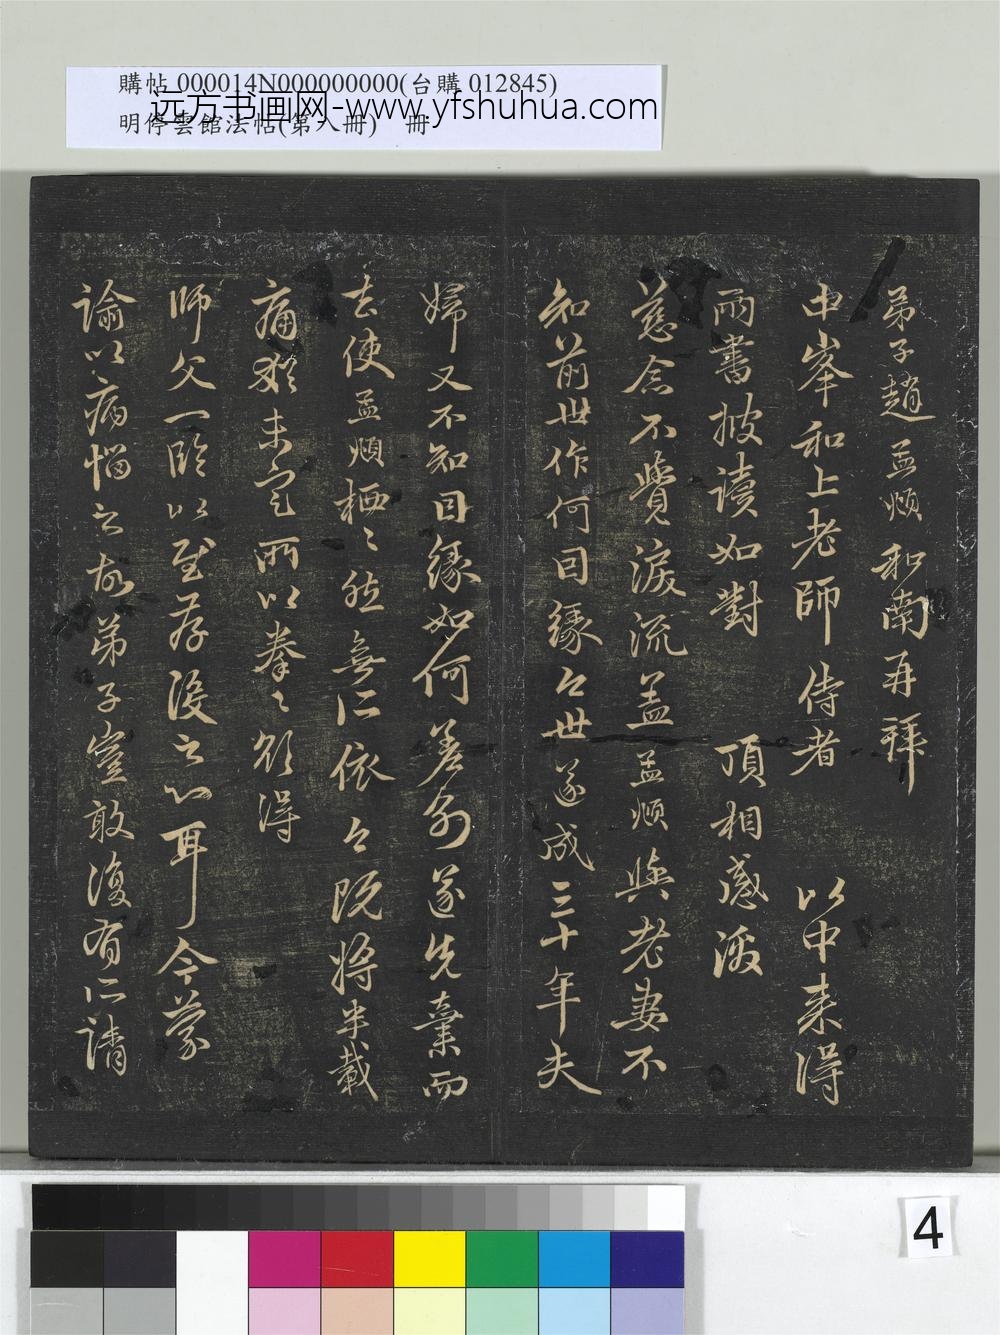 購帖 000014N000000000(台購 012845)
远方书画网-www.yfshuhua.com
明停雲館法帖(第八冊) 冊
弟子趙孟頫和南再拜
中峯和上老師侍者 以中来得
兩書披讀如對 頂相感激
慈念不覺淚流盖孟頫與老妻不
知前世作何因緣今世遂成三十年夫
婦又不知因緣如何差別遂先棄而
去使孟頫栖〻然無所依今既將半載
痛猶未定所以拳〻欲得
師父一臨以至存没之心耳今蒙
諭以病惱之故弟子豈敢復有所請
4